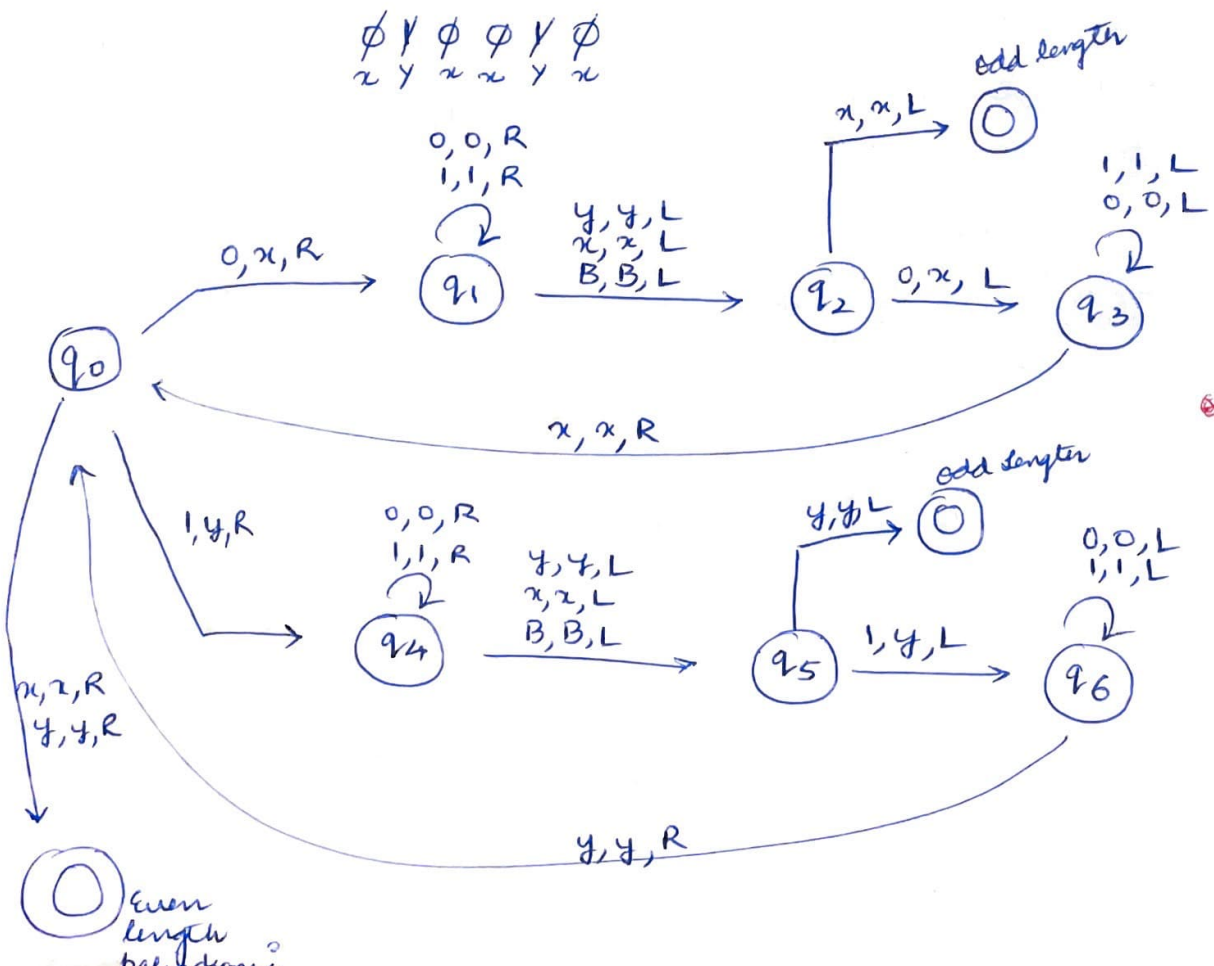 0 1 0 0 1 0
x y x x y x
odd length
x, x, L
0, 0, R
1, 1, R
1, 1, L
0, 0, L
y, y, L
x, x, L
B, B, L
0, x, R
q1
q2
0, x, L
q3
q0
x, x, R
odd length
1, y, R
0, 0, R
1, 1, R
y, y, L
0, 0, L
1, 1, L
y, y, L
x, x, L
B, B, L
q4
q5
1, y, L
q6
x, x, R
y, y, R
y, y, R
Even
length